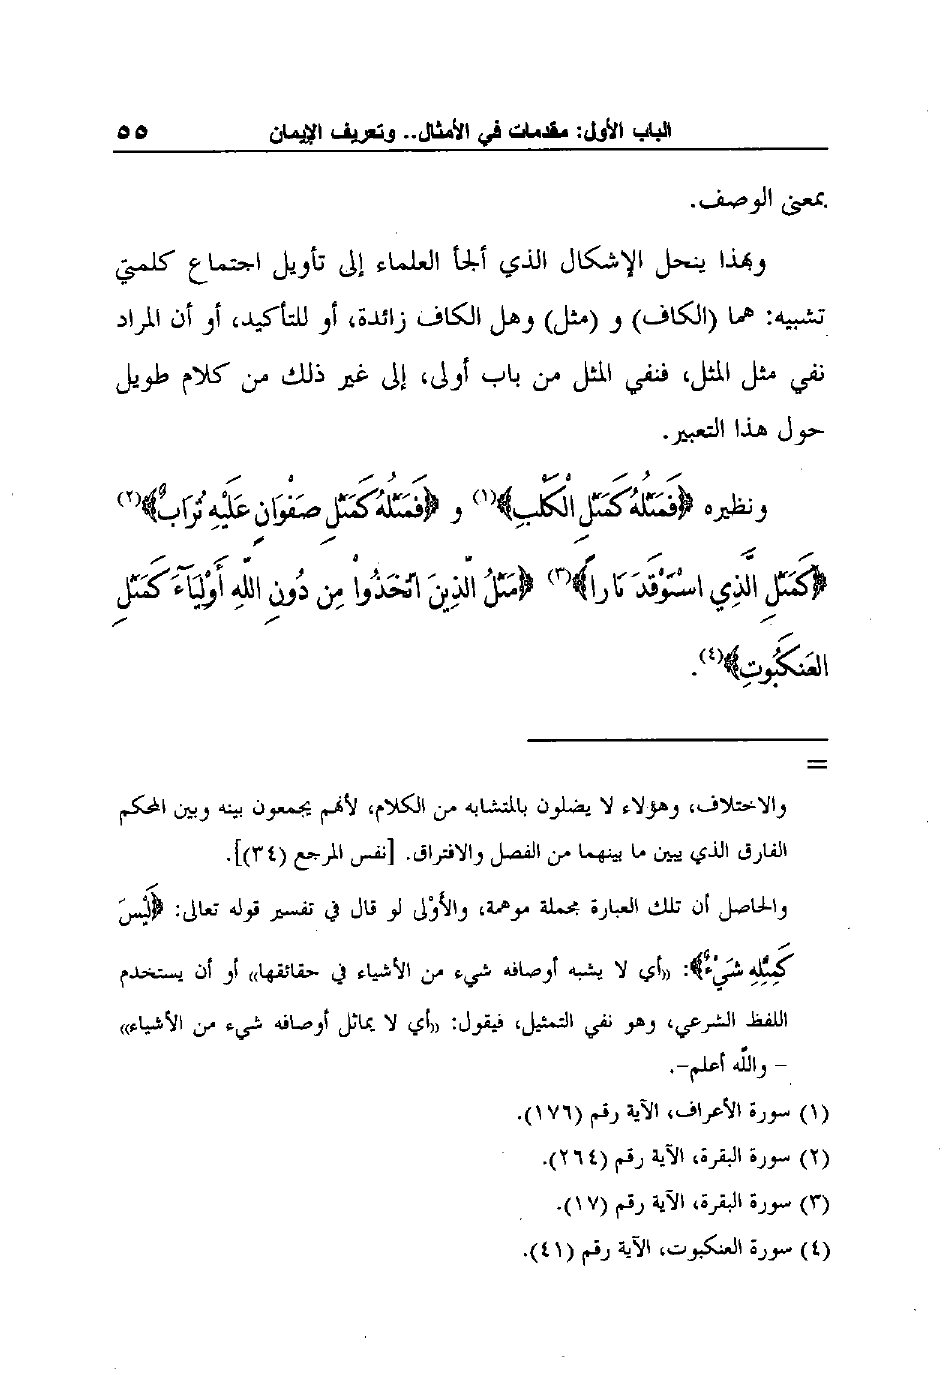 الباب الأول: مقدمات في الأمثال.. وتعريف الإيمان ٥٥
بمعنى الوصف.
وبهذا ينحل الإشكال الذي ألجأ العلماء إلى تأويل اجتماع كلمتي
تشبيه: هما (الكاف) و (مثل) وهل الكاف زائدة، أو للتأكيد، أو أن المراد
نفي مثل المثل، فنفي المثل من باب أولى، إلى غير ذلك من كلام طويل
حول هذا التعبير.
ونظيره ﴿فَمَثَلُهُ كَمَثَلِ الْكَلْبِ﴾(١) و ﴿فَمَثَلُهُ كَمَثَلِ صَفْوَانٍ عَلَيْهِ تُرَابٌ﴾(٢)
﴿كَمَثَلِ الَّذِي اسْتَوْقَدَ نَاراً﴾(٣) ﴿مَثَلُ الَّذِينَ اتَّخَذُوا مِن دُونِ اللَّهِ أَوْلِيَآءَ كَمَثَلِ
العَنكَبُوتِ﴾(٤).
=
والاختلاف، وهؤلاء لا يضلون بالمتشابه من الكلام، لأنهم يجمعون بينه وبين المحكم
الفارق الذي يبين ما بينهما من الفصل والافتراق. [نفس المرجع (٣٤)].
والحاصل أن تلك العبارة مجملة موهمة، والأوْلى لو قال في تفسير قوله تعالى: ﴿لَيْسَ
كَمِثْلِهِ شَيْءٌ﴾: «أي لا يشبه أوصافه شيء من الأشياء في حقائقها» أو أن يستخدم
اللفظ الشرعي، وهو نفي التمثيل، فيقول: «أي لا يماثل أوصافه شيء من الأشياء»
- والله أعلم-.
(١) سورة الأعراف، الآية رقم (١٧٦).
(٢) سورة البقرة، الآية رقم (٢٦٤).
(٣) سورة البقرة، الآية رقم (١٧).
(٤) سورة العنكبوت، الآية رقم (٤١).